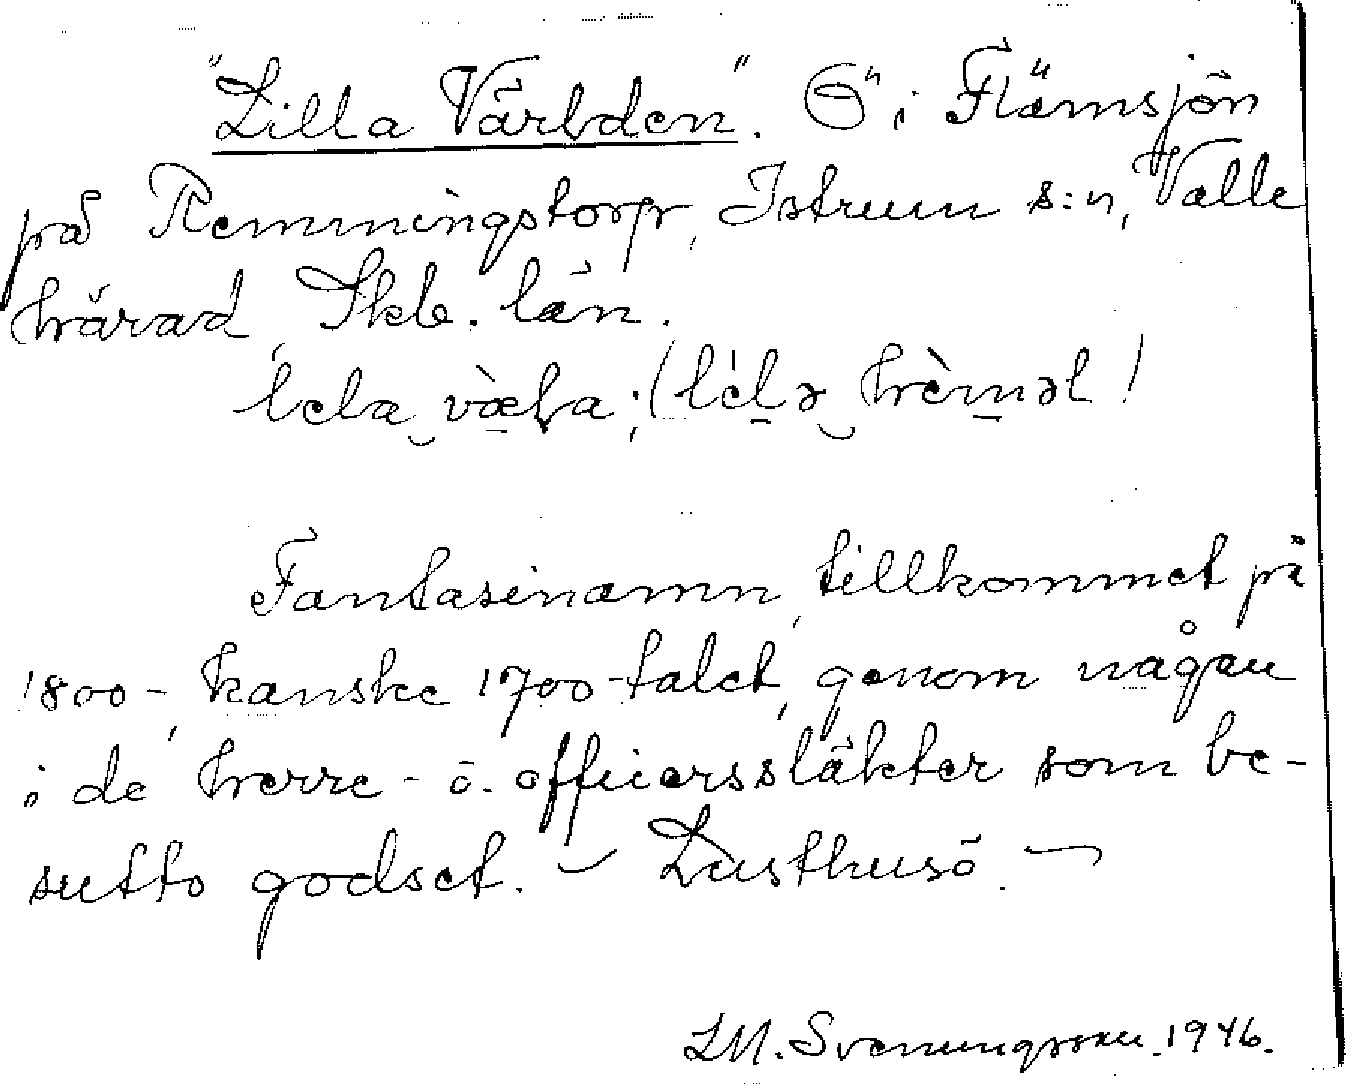 "Lilla Världen". Ö i Flämsjön
på Remmingstorp, Istrum s:n, Valle
härad, Skb. län.
lela væḷa; (lèlə hrèməl!
Fantasinamn, tillkommet på
1800-, kanske 1700-talet, genom någon
i de herre- o. officerssläkter som be-
sutto godset. – Lusthusö. –
LM. Svenungsson. 1946.